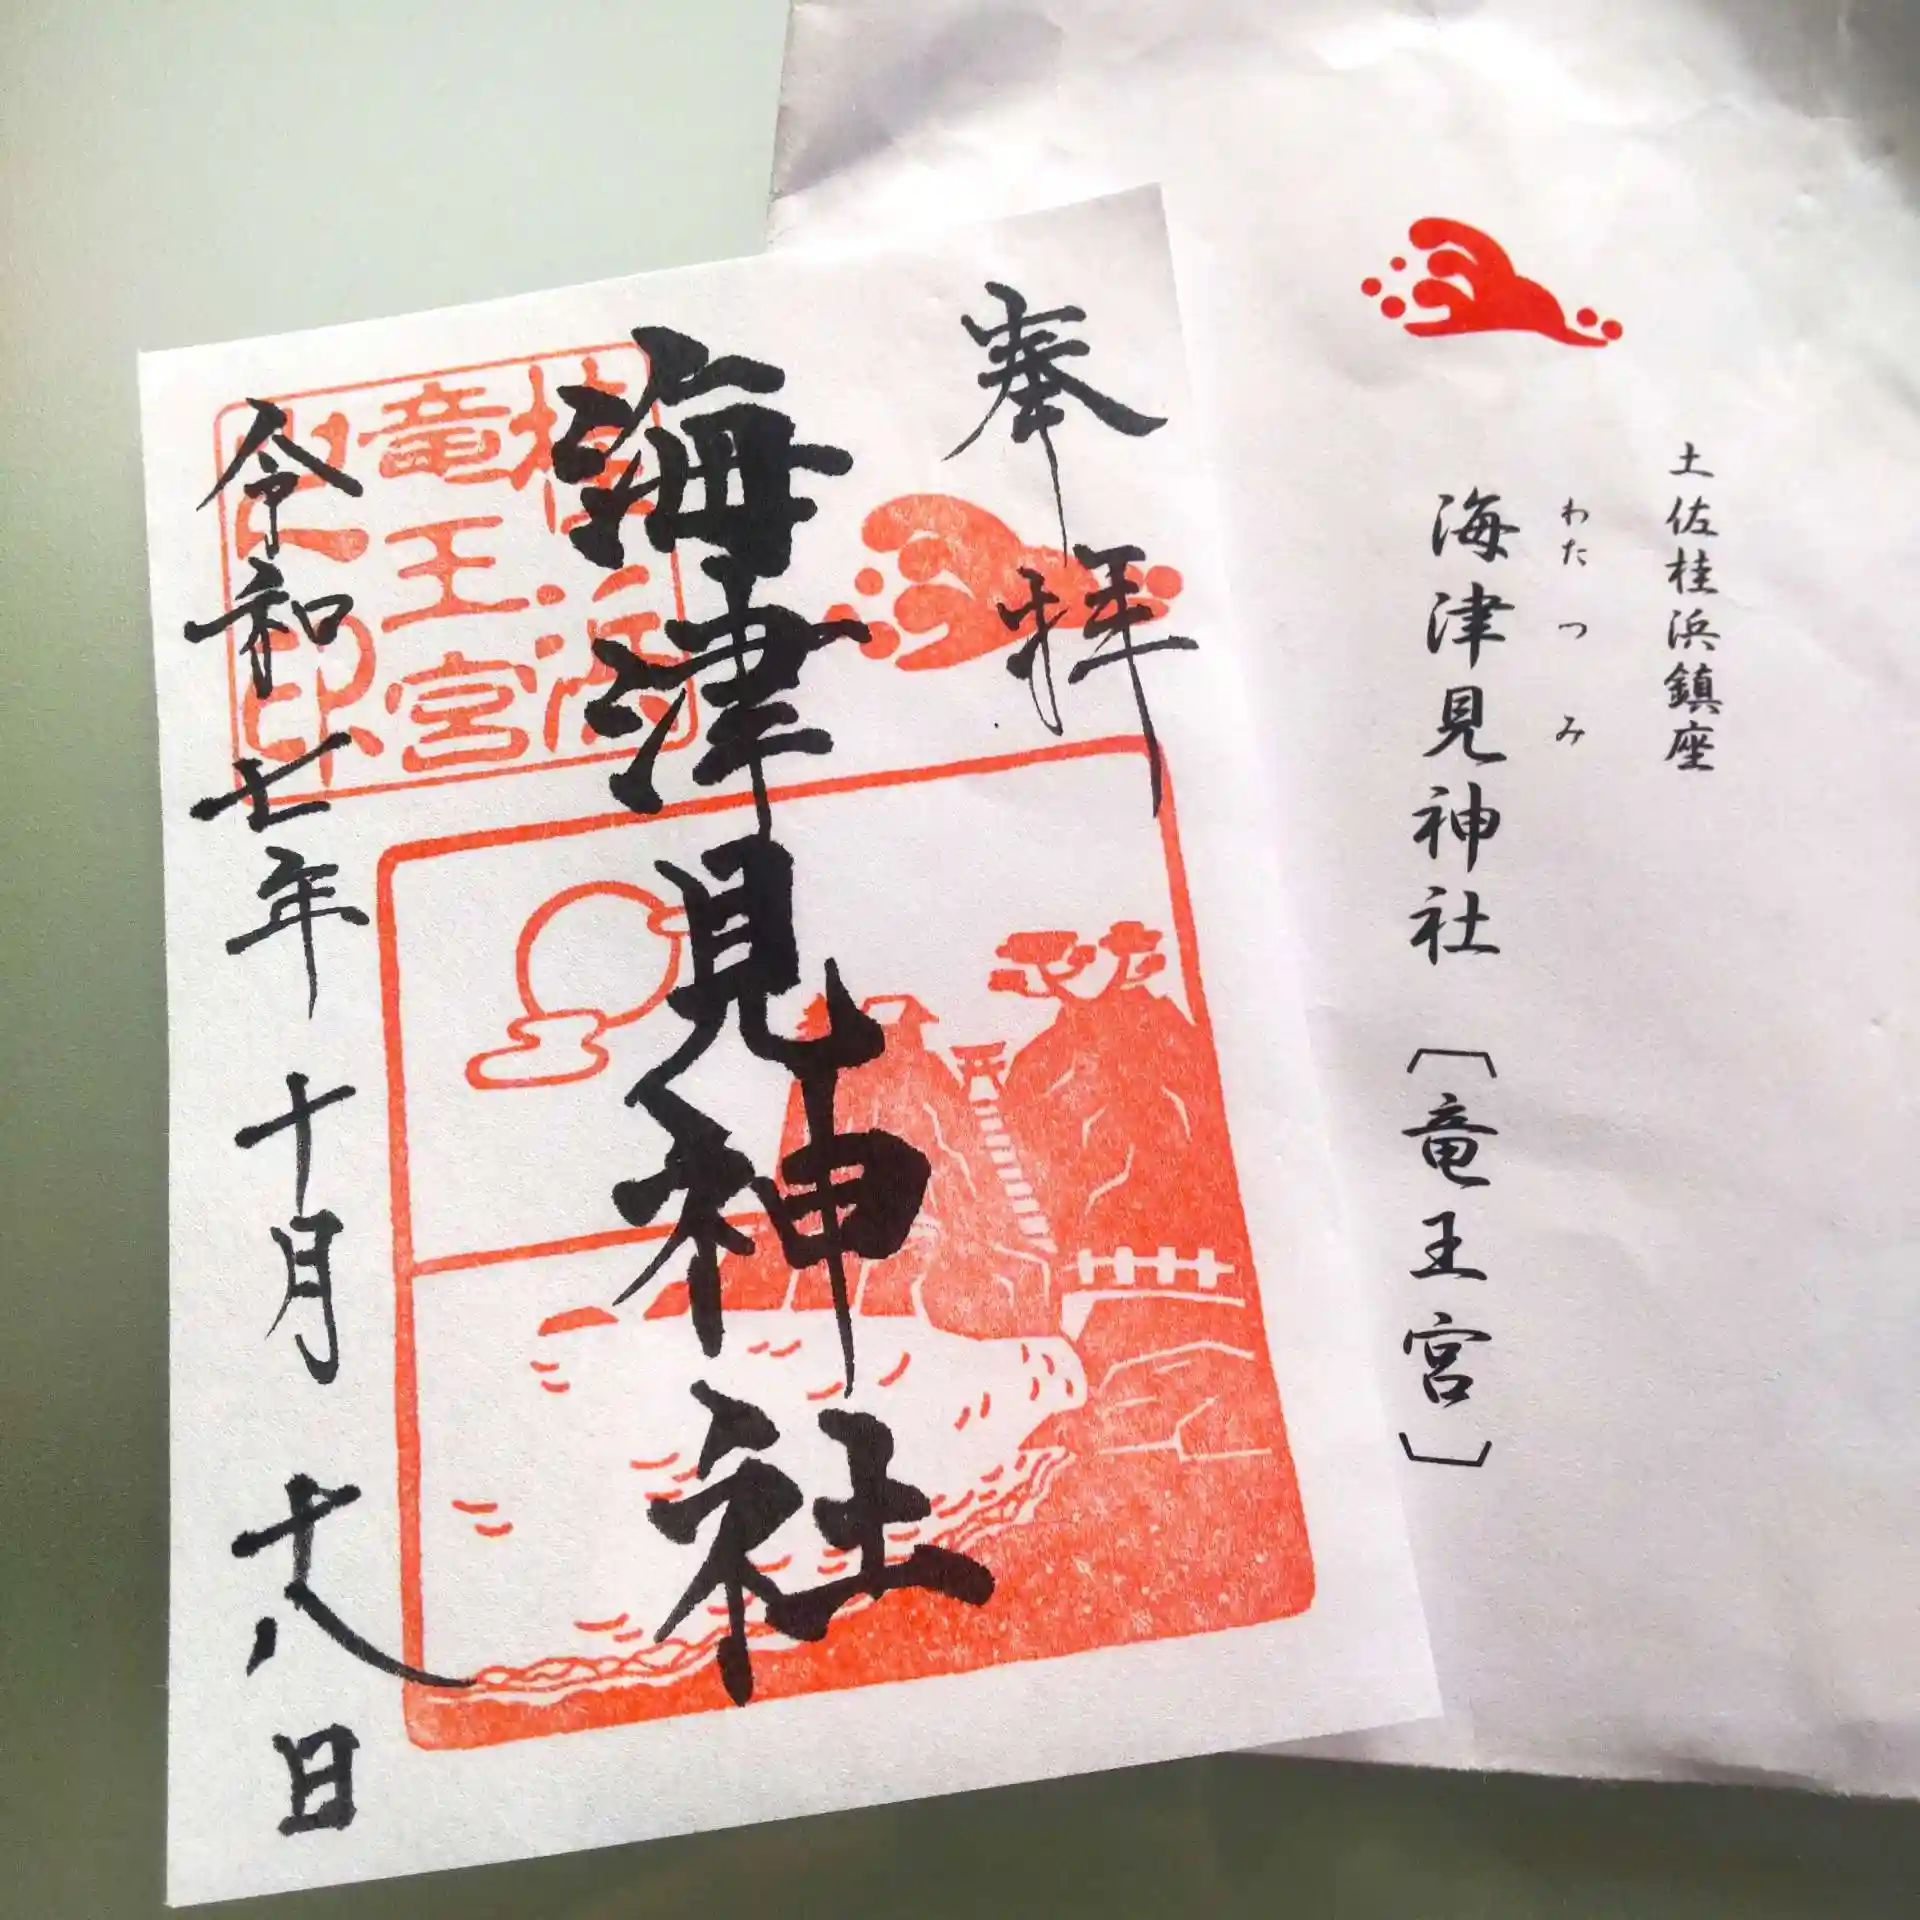 土佐桂浜鎮座
わたつみ
海津見神社〔竜王宮〕
奉拝
海津見神社
桂浜
竜王宮
之印
令和七年十月十八日